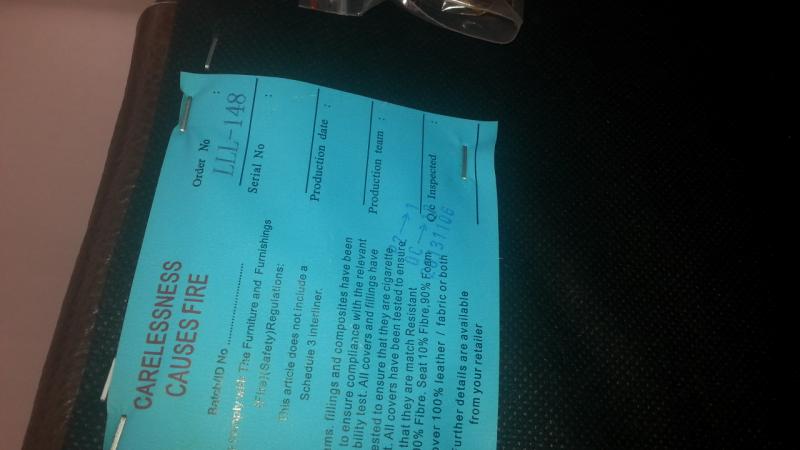 CARELESSNESS
CAUSES FIRE
Batch/ID No ................................
comply with The Furniture and Furnishings
(Fire)(Safety)Regulations:
This article does not include a
Schedule 3 interliner.
ms. fillings and composites have been
to ensure compliance with the relevant
bility test. All covers and fillings have
ested to ensure that they are cigarette
t. All covers have been tested to ensure
that they are match Resistant
00% Fibre. Seat 10% Fibre,90% Foam
over 100% leather / fabric or both
urther details are available
from your retailer
Order No :
LLL-148
Serial No :
Production date :
Production team :
Q/c Inspected :
131106